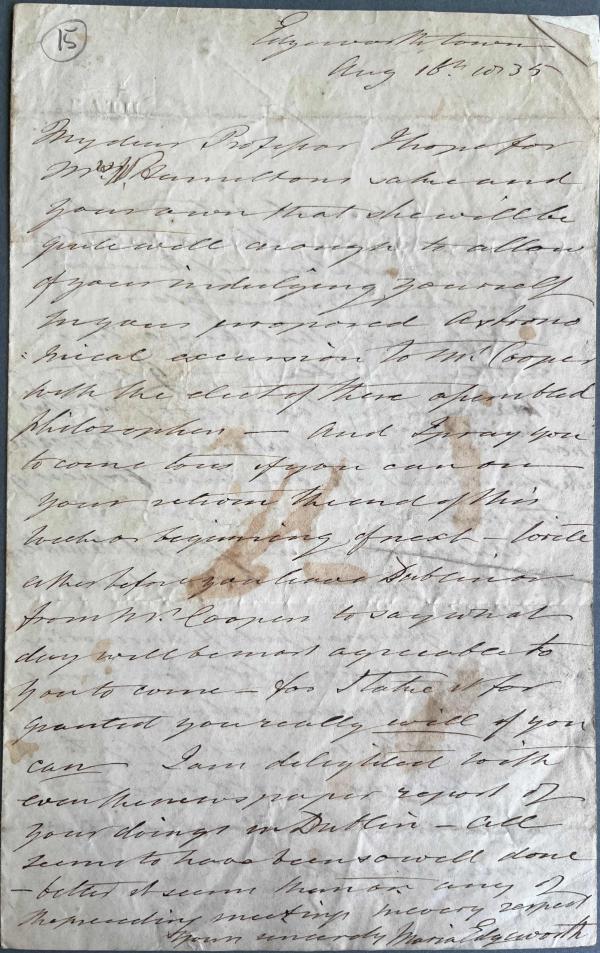 15
Edgeworthstown
Aug 16th 1835
My dear Professor I hope for
Mrs Hamiltons sake and
your own that she will be
quite well enough to allow
of your indulging yourself
in your proposed Astrono
-mical excursion to Mr Cooper
with the elect of these assembled
philosophers — And I pray you
to come to us if you can on
your return the end of this
week or beginning of next — Write
either before you leave Dublin or
from Mr Coopers to say what
day will be most agreeable to
you to come — for I take it for
granted you really will if you
can I am delighted with
even the newspaper report of
your doings in Dublin — All
seems to have been so well done
— better it seems than in any of
the preceding meetings in every respect
Yours sincerely Maria Edgeworth